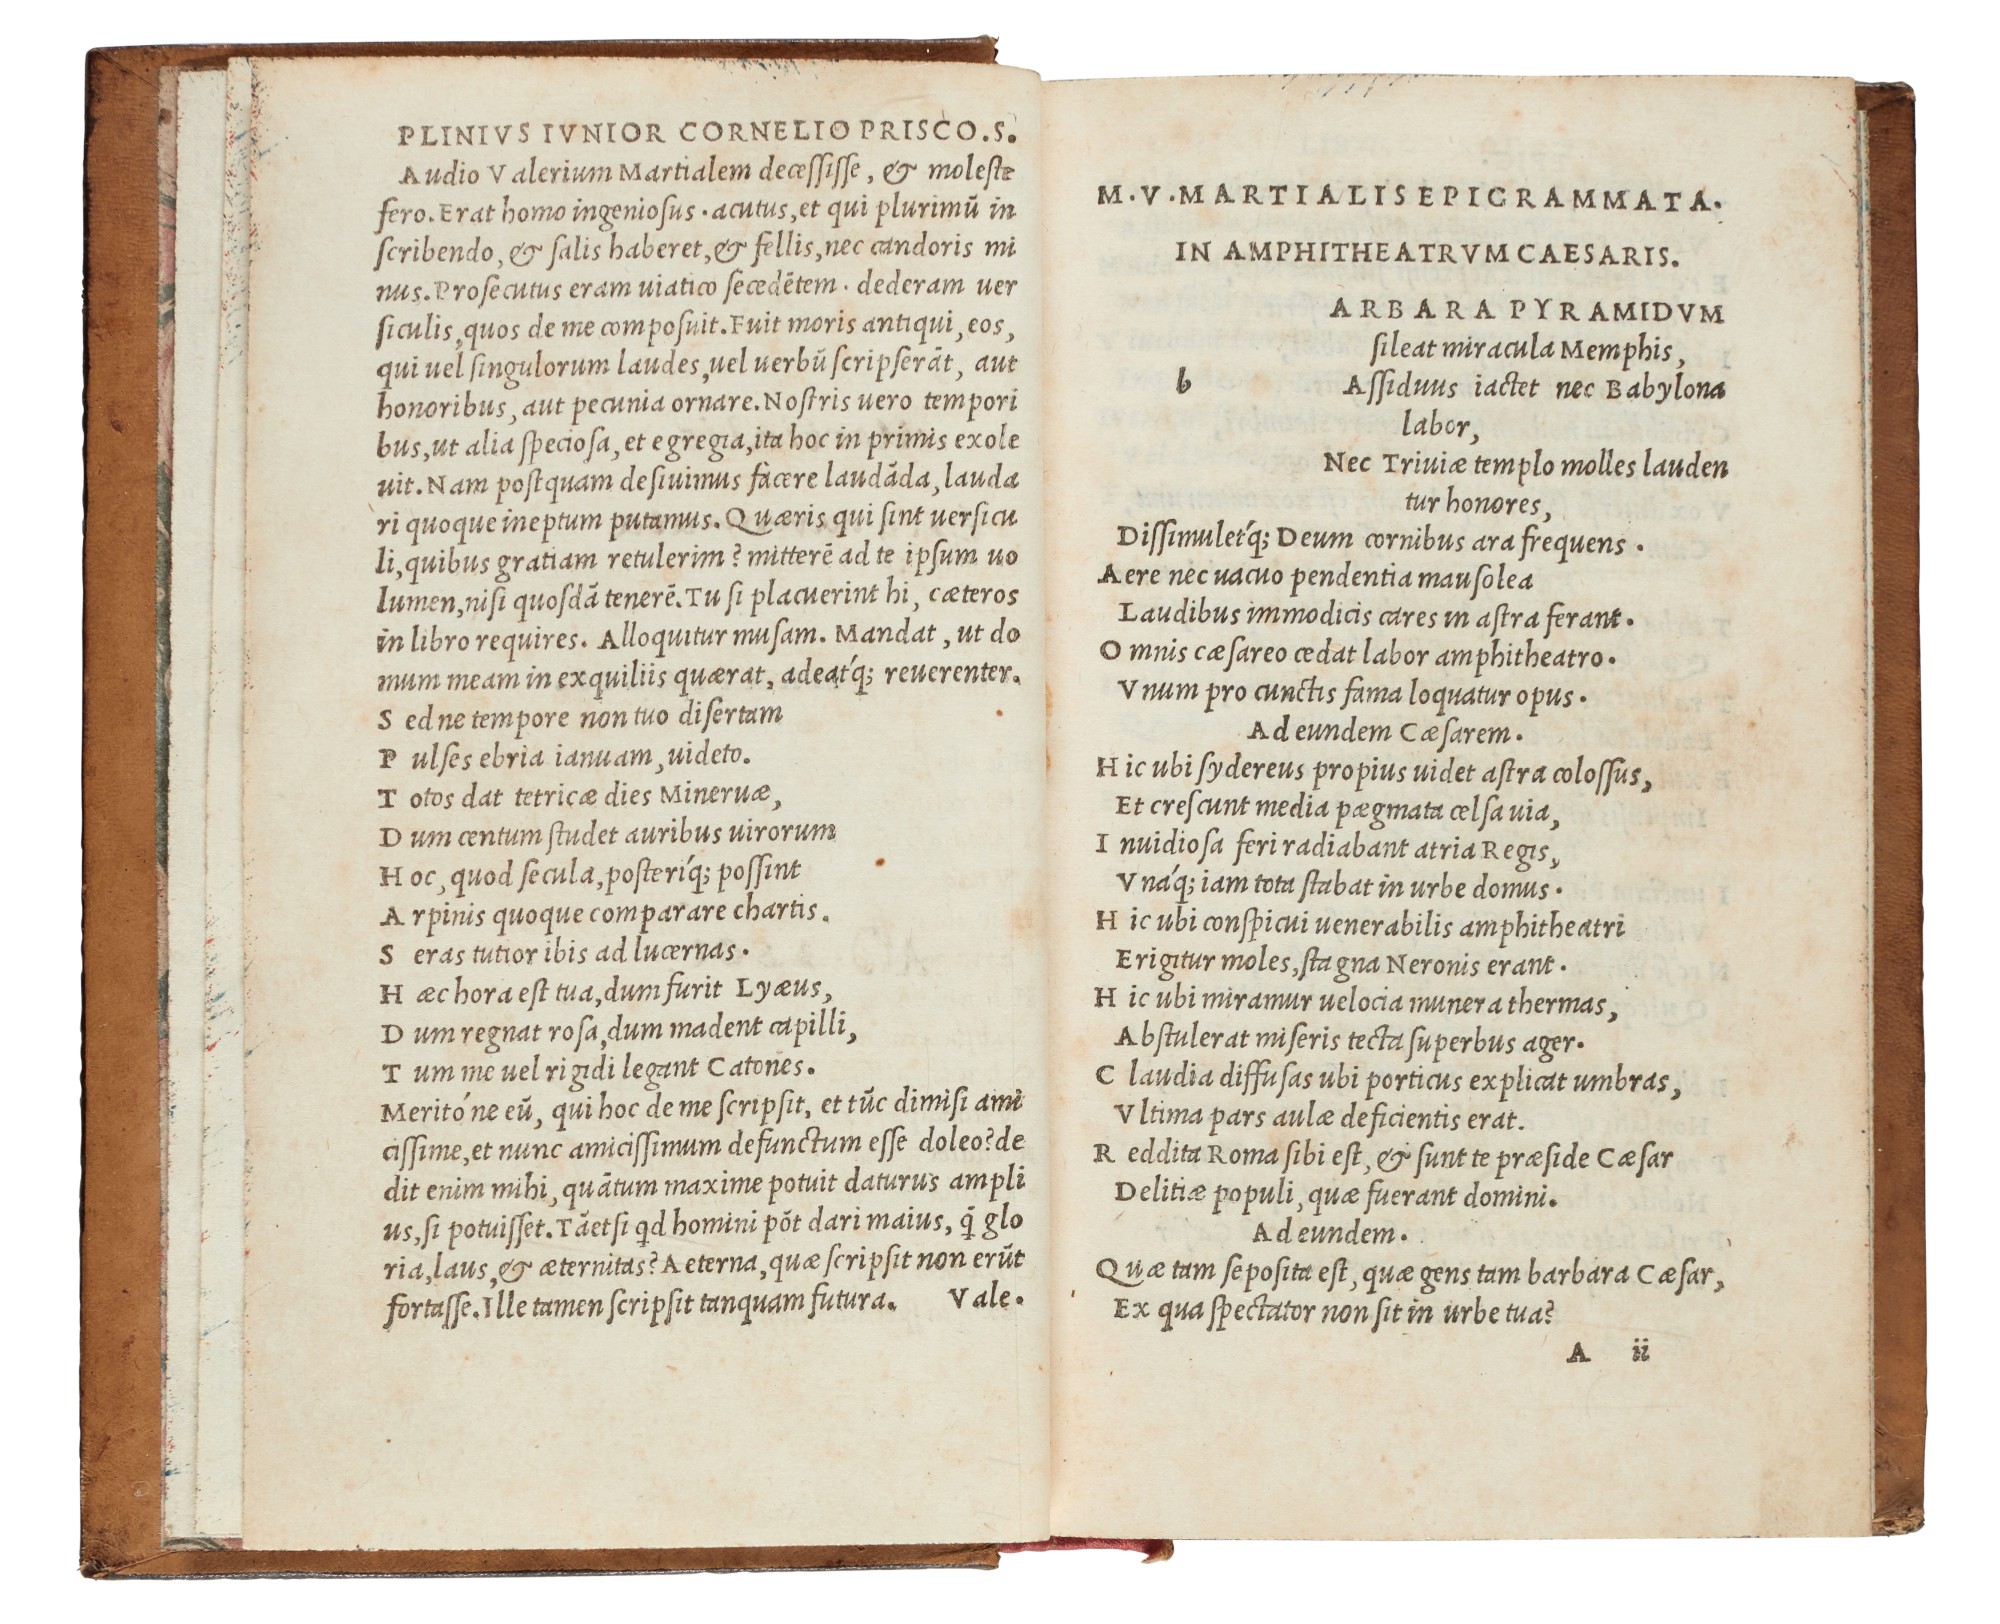 PLINIVS IVNIOR CORNELIO PRISCO.S.
Audio Valerium Martialem decessisse, & moleste
fero. Erat homo ingeniosus. acutus, et qui plurimū in
scribendo, & salis haberet, & fellis, nec candoris mi
nus. Prosecutus eram uiatico secedētem. dederam uer
siculis, quos de me composuit. Fuit moris antiqui, eos,
qui uel singulorum laudes, uel uerbū scripserāt, aut
honoribus, aut pecunia ornare. Nostris uero tempori
bus, ut alia speciosa, et egregia, ita hoc in primis exole
uit. Nam postquam desiuimus facere laudāda, lauda
ri quoque ineptum putamus. Quæris qui sint uersicu
li, quibus gratiam retulerim? mitterē ad te ipsum uo
lumen, nisi quosdā tenerē. Tu si placuerint hi, cæteros
in libro requires. Alloquitur musam. Mandat, ut do
mum meam in exquiliis quærat, adeat'q; reuerenter.
S ed ne tempore non tuo disertam
P ulses ebria ianuam, uideto.
T otos dat tetricæ dies Mineruæ,
D um centum studet auribus uirorum
H oc, quod secula, posterí'q; possint
A rpinis quoque comparare chartis.
S eras tutior ibis ad lucernas.
H æc hora est tua, dum furit Lyæus,
D um regnat rosa, dum madent capilli,
T um me uel rigidi legant Catones.
Meritó ne eū, qui hoc de me scripsit, et tūc dimisi ami
cissime, et nunc amicissimum defunctum esse doleo? de
dit enim mihi, quātum maxime potuit daturus ampli
us, si potuisset. Tāetsi qd homini pōt dari maius, q̄ glo
ria, laus, & æternitas? Aeterna, quæ scripsit non erūt
fortasse. Ille tamen scripsit tanquam futura. Vale.
M.V.MARTIALIS EPIGRAMMATA.
IN AMPHITHEATRVM CAESARIS.
b ARBARA PYRAMIDVM
sileat miracula Memphis,
Assiduus iactet nec Babylona
labor,
Nec Triuiæ templo molles lauden
tur honores,
Dissimulet'q; Deum cornibus ara frequens.
Aere nec uacuo pendentia mausolea
Laudibus immodicis cares in astra ferant.
O mnis cæsareo cedat labor amphitheatro.
Vnum pro cunctis fama loquatur opus.
Ad eundem Cæsarem.
H ic ubi sydereus propius uidet astra colossus,
Et crescunt media pægmata celsa uia,
I nuidiosa feri radiabant atria Regis,
Vná'q; iam tota stabat in urbe domus.
H ic ubi conspicui uenerabilis amphitheatri
Erigitur moles, stagna Neronis erant.
H ic ubi miramur uelocia munera thermas,
Abstulerat miseris tecta superbus ager.
C laudia diffusas ubi porticus explicat umbras,
Vltima pars aulæ deficientis erat.
R eddita Roma sibi est, & sunt te præside Cæsar
Delitiæ populi, quæ fuerant domini.
Ad eundem.
Quæ tam seposita est, quæ gens tam barbara Cæsar,
Ex qua spectator non sit in urbe tua?
A ii